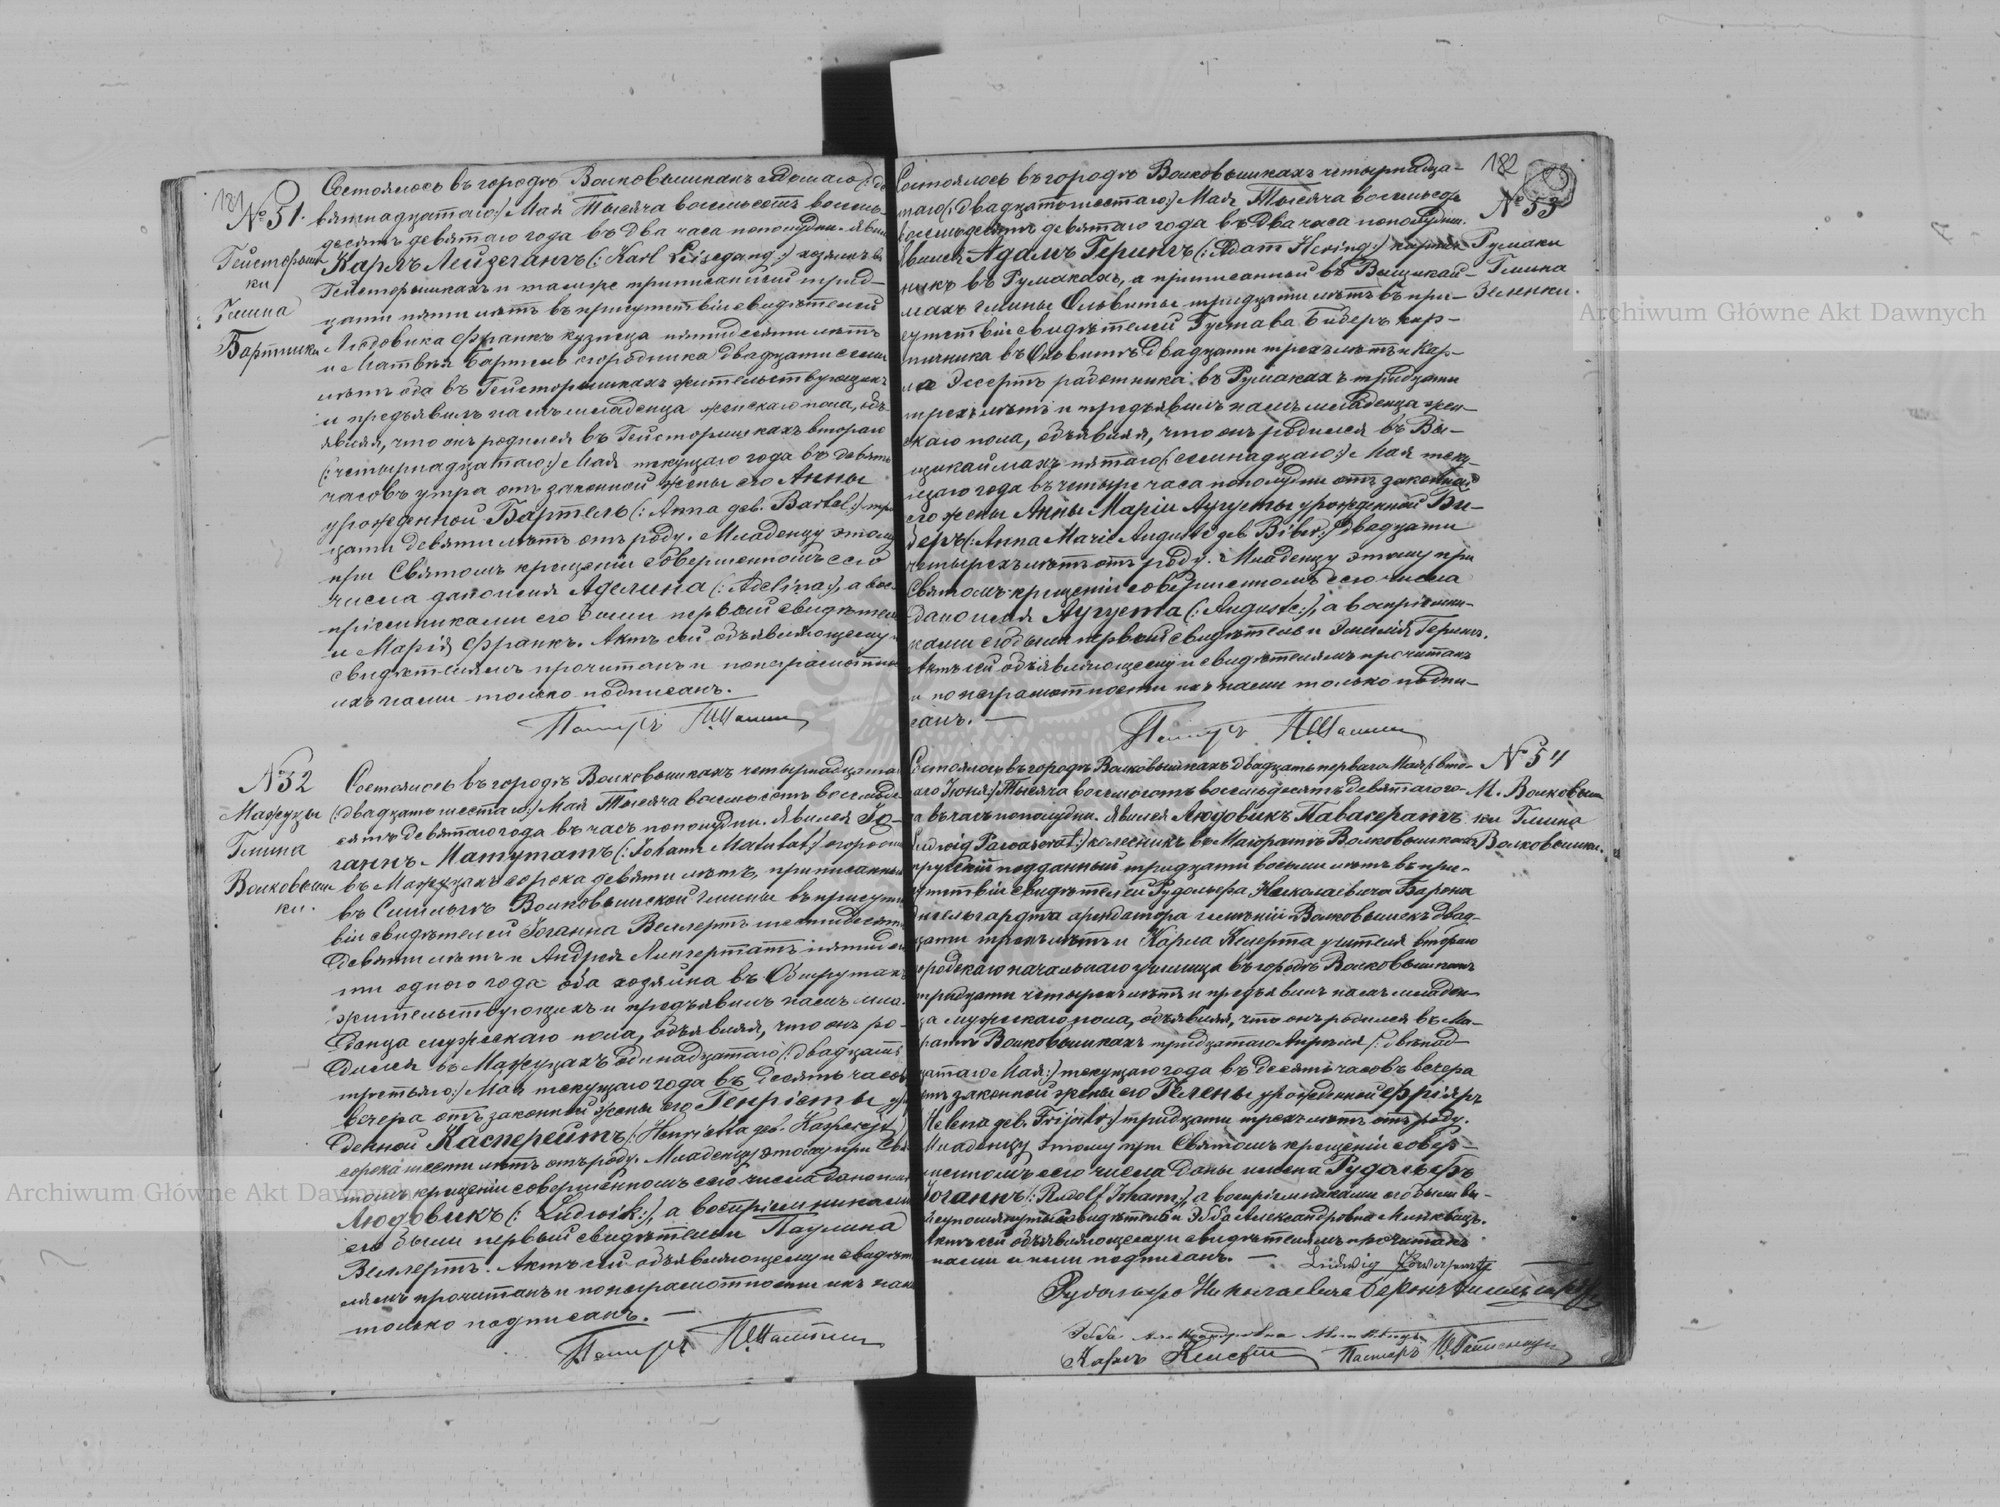 181
№ 51.
Гейсторыш
ки
Гмина
Бартники
Состоялось въ городѣ Волковышкахъ седьмаго (: де
вятнадцатаго:) Мая Тысяча восемьсотъ восемь-
десятъ девятаго года въ два часа пополудни. Явил
Карлъ Лейзегангъ (: Karl Leisegang:) хозяинъ въ
Гейсторышкахъ и тамъ же приписанный трид-
цати пяти лѣтъ въ присутствіи свидѣтелей
Людовика Франкъ кузнеца пятидесяти лѣтъ
и Матвѣя Бартель огородника двадцати семи
лѣтъ оба въ Гейсторышкахъ жительствующихъ
и предъявилъ намъ младенца женскаго пола, объ-
являя, что онъ родился въ Гейсторишкахъ втораго
(: четырнадцатаго:) Мая текущаго года въ девять
часовъ утра отъ законной жены его Анны
урожденной Бартель (: Anna geb. Bartel:) три
цати девяти лѣтъ отъ роду. Младенцу этому
при Святомъ крещеніи совершенномъ сего
числа дано имя Аделина (: Adelina:), а вос-
пріемниками его были первый свидѣтель
и Марія Франкъ. Актъ сей объявляющему и
свидѣтелямъ прочитанъ и по неграмотности
ихъ нами только подписанъ.
Пасторъ
№ 52
Мажуцы
Гмина
Волковыш
ки.
Состоялось въ городѣ Волковышкахъ четырнадцата
(: двадцать шестаго:) Мая Тысяча восемьсотъ восемьде
сятъ девятаго года въ часъ пополудни. Явился Іо-
ганнъ Матутатъ (: Johann Matutat:) огородни
въ Мажуцахъ сорока девяти лѣтъ, приписанный
въ Волковышской гмины въ присутст
віи свидѣтелей Іоганна Веллертъ шестидесяти
девяти лѣтъ и Андрея Лингертатъ пятидеся
ти одного года оба хозяйна въ Обшрутахъ
жительствующихъ и предъявилъ намъ мла-
денца мужескаго пола, объявляя, что онъ ро-
дился въ Мажуцахъ одинадцатаго (: двадцать
третьяго:) Мая текущаго года въ десять часовъ
вечера отъ законной жены его Генріеты уро
денной Касперейтъ (: Henrietta geb. Kasperejt:)
сорока шести лѣтъ отъ роду. Младенцу этому при Свя
томъ крещеніи совершенномъ сего числа дано имя
Людовикъ (: Ludwik:), а воспріемниками
его были первый свидѣтель и Паулина
Веллертъ. Актъ сей объявляющему и свидѣте
лямъ прочитанъ и по неграмотности ихъ нами
только подписанъ.
Пасторъ
182
№ 53
Румаки
Гмина
Зеленки.
Состоялось въ городѣ Волковышкахъ четырнадца-
таго (: двадцать шестаго:) Мая Тысяча восемьсотъ
восемьдесятъ девятаго года въ два часа пополудни.
Явился Адамъ Герингъ (: Adam Hering:)
никъ въ Румакахъ, а приписанный въ Вищикай-
махъ гмины Ольвиты тридцати лѣтъ въ при-
сутствіи свидѣтелей Густава Бидеръ кир-
пичника въ Ольвитѣ двадцати трехъ лѣтъ и Кар-
ла Эссертъ работника въ Румакахъ тридцати
трехъ лѣтъ и предъявилъ намъ младенца жен-
скаго пола, объявляя, что онъ родился въ Ви-
щикаймахъ пятаго (: семнадцаго:) Мая теку-
щаго года въ четыре часа пополудни отъ законной
его жены Анны Маріи Аугусты урожденной Би-
деръ (: Anna Marie Auguste geb Biber:) двадцати
четырехъ лѣтъ отъ роду. Младенцу этому при
Святомъ крещеніи совершенномъ сего числа
дано имя Аугуста (: Auguste:), а воспріемни-
ками его были первый свидѣтель и Эмилія Герингъ.
Актъ сей объявляющему и свидѣтелямъ прочитанъ
и по неграмотности ихъ нами только подпи-
санъ.
Пасторъ
№ 54
М. Волковыш
ки Гмина
Волковышки.
Состоялось въ городѣ Волковышкахъ двадцать перваго Мая (: вто-
раго Іюня:) Тысяча восемьсотъ восемьдесятъ девятаго го-
да въ часъ пополудни. Явился Людовикъ Павасератъ
Ludwig Pawaserat:) колесникъ въ Маіоратѣ Волковышкахъ
прусскій подданный тридцати восьми лѣтъ въ при-
сутствіи свидѣтелей Рудольфа Николаевича Барона
Энгельгардта арендатора имѣній Волковышекъ двад-
цати трехъ лѣтъ и Карла Келерта учителя втораго
городскаго начальнаго училища въ городѣ Волковышкахъ
тридцати четырехъ лѣтъ и предъявилъ намъ младен-
ца мужескаго пола, объявляя, что онъ родился въ Ма-
іоратѣ Волковышкахъ тридцатаго Апрѣля (: двѣнад-
цатаго Мая:) текущаго года въ десять часовъ вечера
отъ законной жены его Гелены урожденной Фрейеръ
Helena geb. тридцати трехъ лѣтъ отъ роду.
Младенцу этому при Святомъ крещеніи совер-
шенномъ сего числа даны имена Рудольфъ
Іоганнъ (: Rudolf Johann:), а воспріемниками его были вы-
шеупомянутый свидѣтель и Эбба Александровна Минквицъ.
Актъ сей объявляющему и свидѣтелямъ прочитанъ
нами и ими подписанъ.
Ludwig Pawaserat
Рудольфъ Николаевичъ Баронъ
Эбба Александровна
Карлъ Пасторъ
Archiwum Główne Akt Dawnych
Archiwum Główne Akt Dawnych